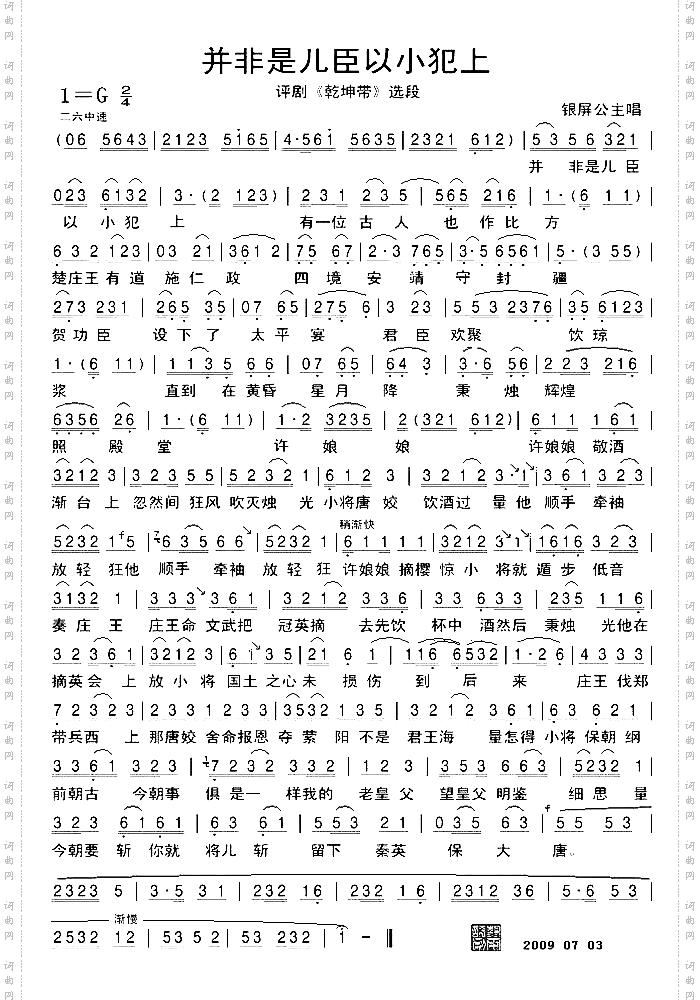 并非是儿臣以小犯上
评剧《乾坤带》选段
1=G 2/4
银屏公主唱
二六中速
(06 5643 | 2123 5165 | 4·561 5635 | 2321 612) | 5 3 5 6 321 |
并 非是儿臣
023 6132 | 3·(2 123) | 2 3 1 2 3 5 | 565 216 | 1·(6 1 1) |
以 小 犯 上 有一位 古 人 也 作 比 方
6 3 2 123 | 03 21 | 361 2 | 75 67 | 2·3 765 | 3·5 6561 | 5·(3 55) |
楚庄王 有 道 施 仁 政 四 境 安 靖 守 封 疆
273 231 | 265 35 | 07 65 | 275 6 | 3 23 | 5 53 2376 | 35 6123 |
贺 功 臣 设 下 了 太 平 宴 君 臣 欢聚 饮 琼
1·(6 11) | 1 1 3 5 6 6 | 07 65 | 64 3 | 3·6 56 | 2 2 3 216 |
浆 直到 在 黄昏 星 月 降 秉 烛 辉煌
6356 26 | 1·(6 11) | 1·2 3235 | 2(321 612) | 6 1 1 1 6 1 |
照 殿 堂 许 娘 娘 许娘娘 敬酒
3212 3 | 3 2 3 5 5 | 5 2 3 2 1 | 6 1 2 3 | 3 2 1 2 3·1 | 3 6 1 3 2 3 |
渐 台 上 忽然间 狂风 吹灭烛 光 小将唐 姣 饮酒过 量 他 顺手 牵袖
稍渐快
5232 15 | 7·6 3 5 6 6 | 5232 1 | 6 1 1 1 1 | 3212 3 1 | 1616 3 2 3 |
放轻 狂他 顺手 牵袖 放 轻 狂 许娘娘 摘樱 惊 小 将就 遁 步 低音
3132 1 | 3 3 3 3 5 | 3 6 1 3 | 3 2 1 2 3 3 | 3 2 3 | 5 6 3 2 3 |
奏 庄 王 庄王命 文武把 冠英摘 去先饮 杯中 酒然后 秉烛 光他在
3 2 3 6 1 | 3212 3 | 6 1 3 5 | 21 6 | 116 6532 | 1·2 6 | 4 3 3 3 |
摘英会 上 放 小 将 国土 之心未 损 伤 到 后 来 庄王 伐郑
7 2 3 2 3 | 2 3 3 2 1 2 3 2 3 | 3532 1 3 5 | 3 2 1 2 3 6 1 | 6 3 6 2 1 |
带兵西 上 那唐姣 舍命报恩 夺 萦 阳 不是 君王海 量怎得 小将 保朝 纲
3 3 3 6 6 6 | 7 2 3 2 3 3 2 | 1 2 3 | 3 5 3 6 6 3 | 5 6 3 2 |
前朝古 今朝事 俱 是一 样我的 老皇 父 望皇父 明鉴 细 思 量
3 2 3 6 1 6 1 | 6 1 6 1 | 5 5 3 2 1 | 0 3 5 6 3 | 5 5 5 3 |
今朝要 斩 你就 将儿 斩 留下 秦英 保 大 唐。
2323 5 | 3·5 31 | 231 232 16 | 232 16 | 232 1236 | 5·6 53 |
渐慢
2532 12 | 53 5 2 | 53 232 | 1 – ‖
2009 07 03
词曲网